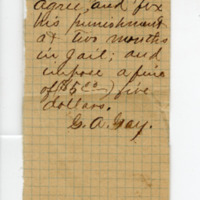 agree, and fix
his punishment
at two months
in jail; and
impose a fine
of $5.00) five
dollars.
G. A. Gay.